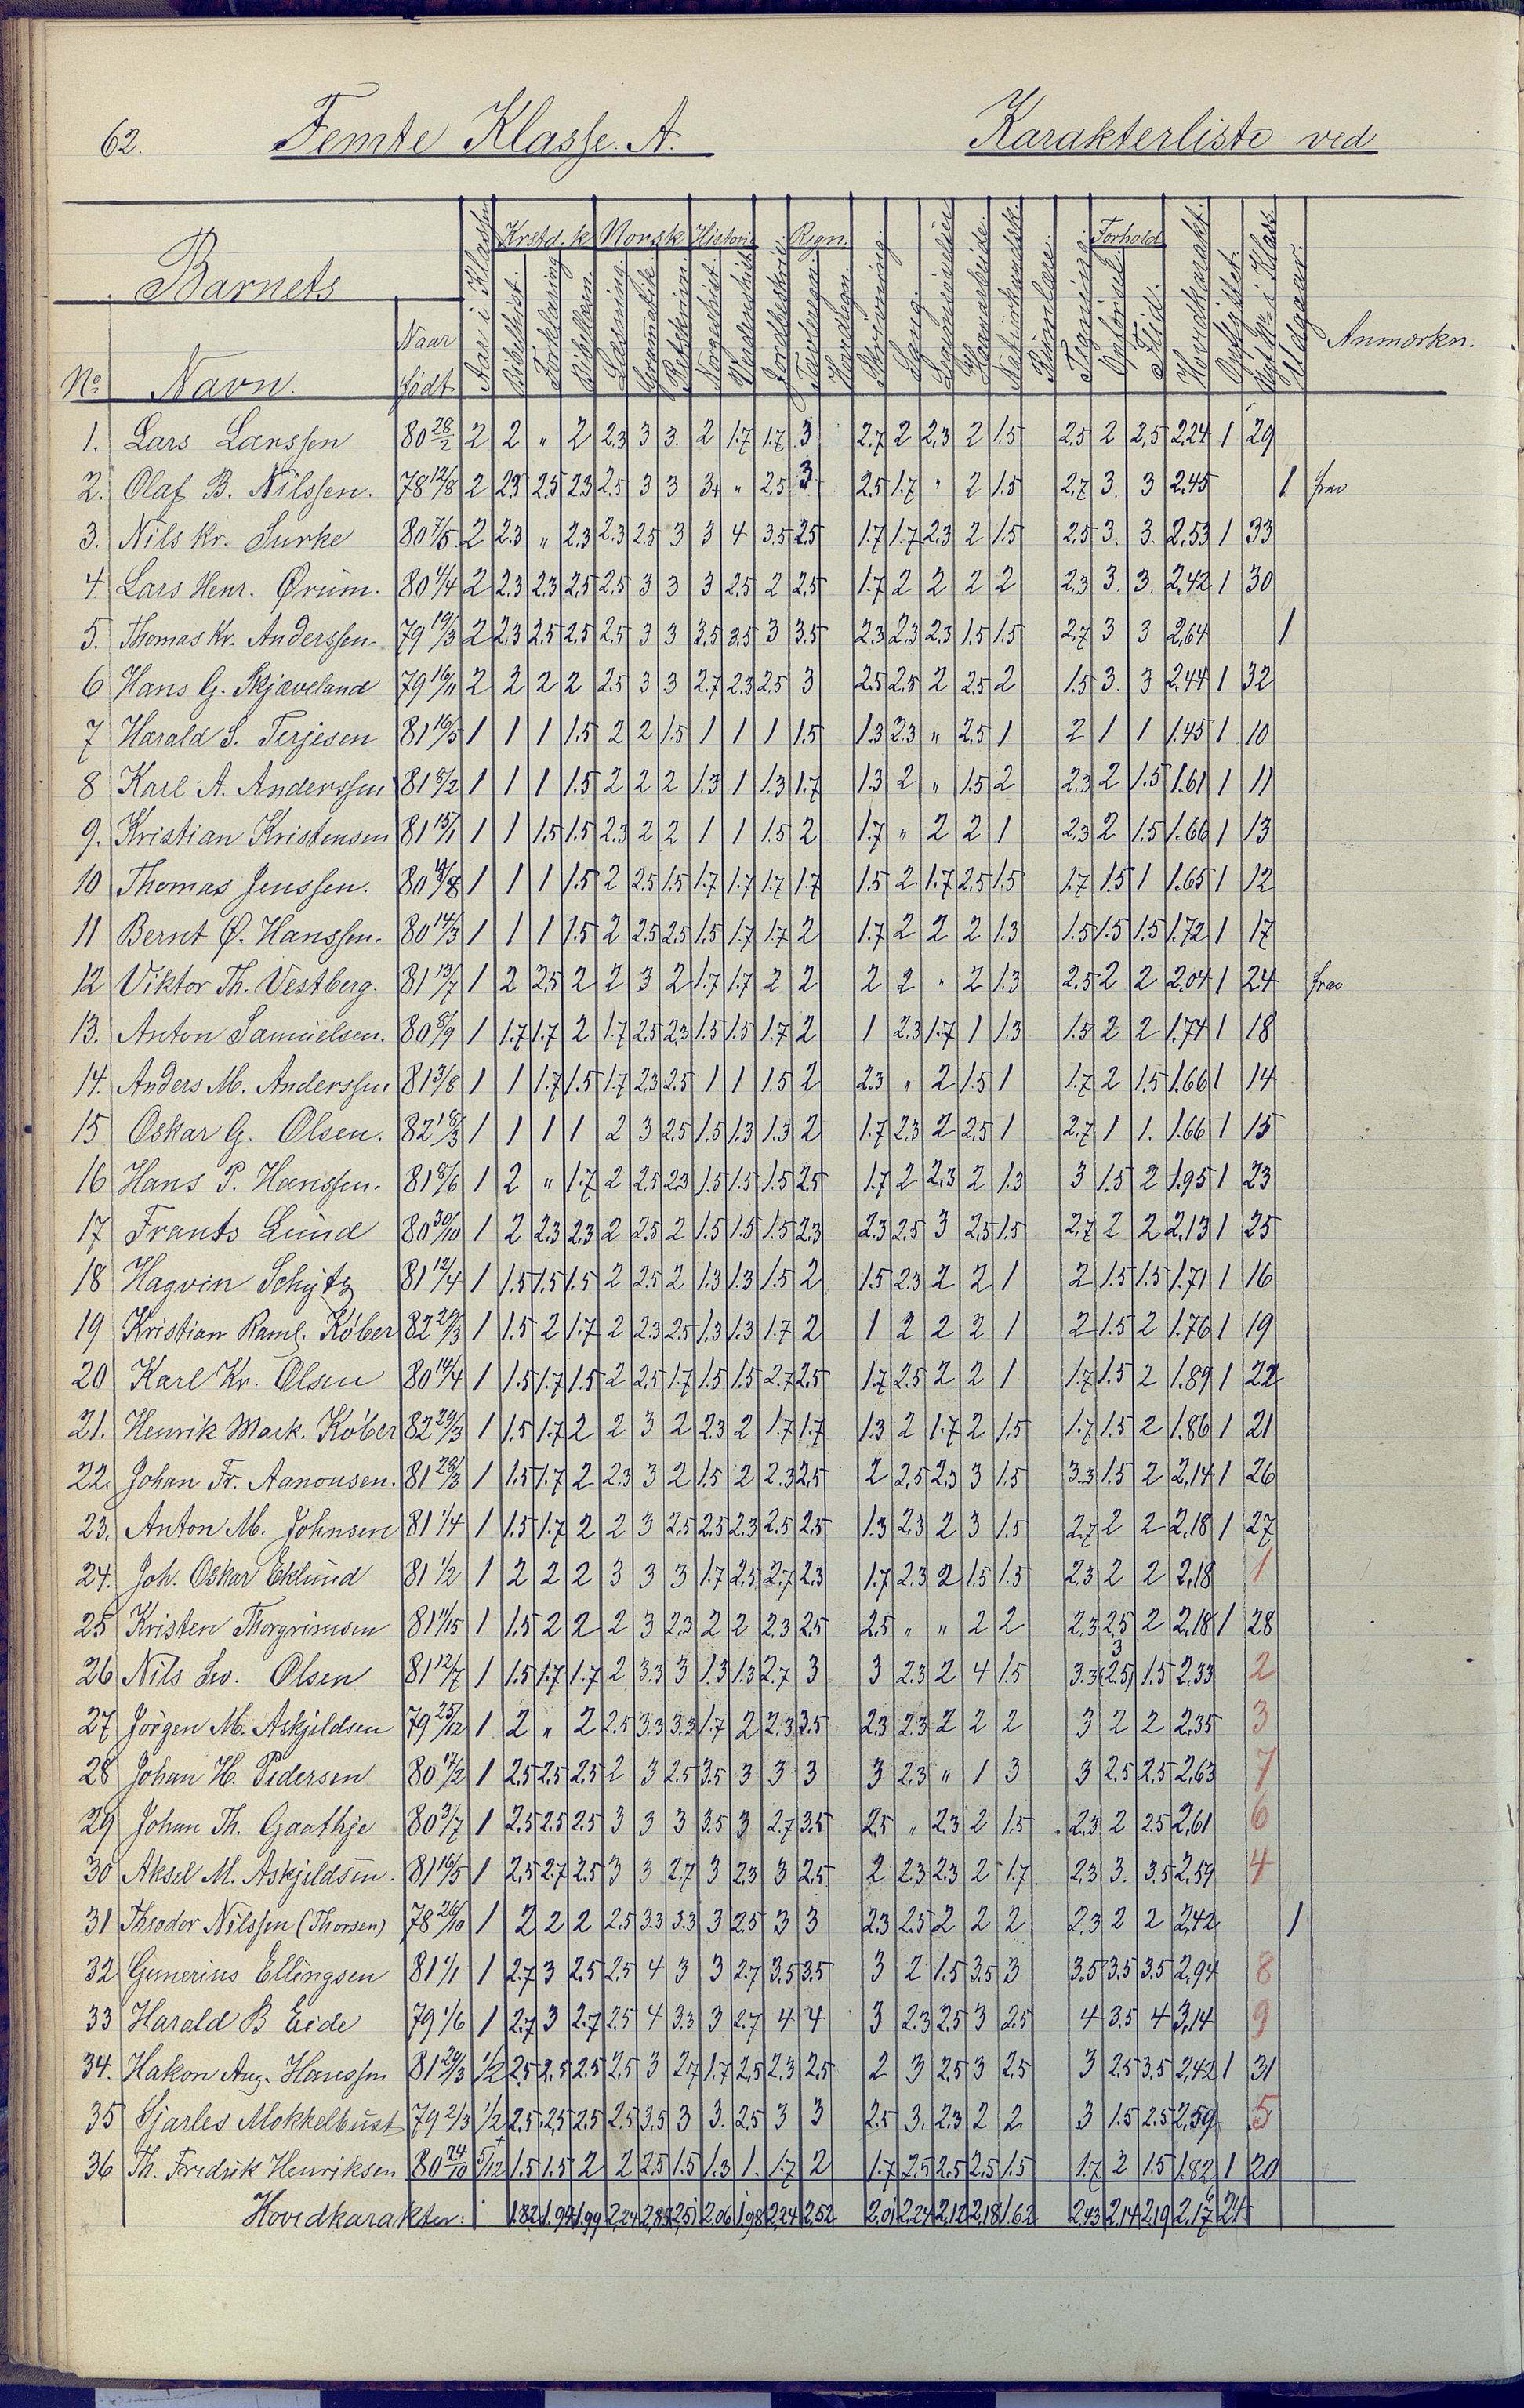 62. Femte Klasse. A. Karakterliste ved
Barnets
No. Navn. Naar født. Aar i Klassen Krstd.k. Bibelhist. Forklaring Bibellæsn. Norsk Læsning Grammatik Retskrivn. Historie Norgeshist. Verdenshist. Jordbeskriv. Regn. Tavleregn Hovdregn. Skrivning Sang Legemsøvelser Haandarbeide Naturkundsk. Rumlære. Tegning. Forhold Opførsel Flid. Hovedkarakt. Opflyttet Nyt No. i Klas. Udgaar. Anmærkn.
1. Lars Larssen 80 28/2 2 2 " 2 2.3 3 3. 2 1.7 1.7 3 2.7 2 2.3 2 1.5 2.5 2 2.5 2.24 1 29
2. Olaf B. Nilssen. 78 12/8 2 2.3 2.5 2.3 2.5 3 3 3+ " 2.5 3 2.5 1.7 " 2 1.5 2.7 3. 3 2.45 1 frav
3. Nils Kr. Surke 80 7/5 2 2.3 " 2.3 2.3 2.5 3 3 4 3.5 2.5 1.7 1.7 2.3 2 1.5 2.5 3. 3. 2.53 1 33
4. Lars Henr. Ørum. 80 4/4 2 2.3 2.3 2.5 2.5 3 3 3 2.5 2 2.5 1.7 2 2 2 2 2.3 3. 3. 2.42 1 30
5. Thomas Kr. Anderssen. 79 19/3 2 2.3 2.5 2.5 2.5 3 3 3.5 3.5 3 3.5 2.3 2.3 2.3 1.5 1.5 2.7 3 3 2.64 1
6 Hans G. Skjæveland 79 16/11 2 2 2 2 2.5 3 3 2.7 2.3 2.5 3 2.5 2.5 2 2.5 2 1.5 3. 3 2.44 1 32
7 Harald S. Terjesen 81 16/5 1 1 1 1.5 2 2 1.5 1 1 1 1.5 1.3 2.3 " 2.5 1 2 1 1 1.45 1 10
8 Karl A. Anderssen 81 8/2 1 1 1 1.5 2 2 2 1.3 1 1.3 1.7 1.3 2 " 1.5 2 2.3 2 1.5 1.61 1 11
9. Kristian Kristensen 81 15/1 1 1 1.5 1.5 2.3 2 2 1 1 1.5 2 1.7 " 2 2 1 2.3 2 1.5 1.66 1 13
10 Thomas Jenssen. 80 19/8 1 1 1 1.5 2 2.5 1.5 1.7 1.7 1.7 1.7 1.5 2 1.7 2.5 1.5 1.7 1.5 1 1.65 1 12
11 Bernt Ø. Hanssen. 80 14/3 1 1 1 1.5 2 2.5 2.5 1.5 1.7 1.7 2 1.7 2 2 2 1.3 1.5 1.5 1.5 1.72 1 17
12 Viktor Th. Vestberg. 81 13/7 1 2 2.5 2 2 3 2 1.7 1.7 2 2 2 2 " 2 1.3 2.5 2 2 2.04 1 24 frav
13. Anton Samuelsen. 80 8/9 1 1.7 1.7 2 1.7 2.5 2.3 1.5 1.5 1.7 2 1 2.3 1.7 1 1.3 1.5 2 2 1.74 1 18
14. Anders M. Anderssen 81 3/8 1 1 1.7 1.5 1.7 2.3 2.5 1 1 1.5 2 2.3 " 2 1.5 1 1.7 2 1.5 1.66 1 14
15 Oskar G. Olsen. 82 18/3 1 1 1 1 2 3 2.5 1.5 1.3 1.3 2 1.7 2.3 2 2.5 1 2.7 1 1. 1.66 1 15
16 Hans P. Hanssen. 81 8/6 1 2 " 1.7 2 2.5 2.3 1.5 1.5 1.5 2.5 1.7 2 2.3 2 1.3 3 1.5 2 1.95 1 23
17 Frants Lund 80 30/10 1 2 2.3 2.3 2 2.5 2 1.5 1.5 1.5 2.3 2.3 2.5 3 2.5 1.5 2.7 2 2 2.13 1 25
18 Hagvin Schytz 81 12/4 1 1.5 1.5 1.5 2 2.5 2 1.3 1.3 1.5 2 1.5 2.3 2 2 1 2 1.5 1.5 1.71 1 16
19 Kristian Raml. Køber 82 29/3 1 1.5 2 1.7 2 2.3 2.5 1.3 1.3 1.7 2 1 2 2 2 1 2 1.5 2 1.76 1 19
20 Karl Kr. Olsen 80 14/4 1 1.5 1.7 1.5 2 2.5 1.7 1.5 1.5 2.7 2.5 1.7 2.5 2 2 1 1.7 1.5 2 1.89 1 22
21. Henrik Mark. Køber 82 29/3 1 1.5 1.7 2 2 3 2 2.3 2 1.7 1.7 1.3 2 1.7 2 1.5 1.7 1.5 2 1.86 1 21
22. Johan Fr. Aanonsen. 81 28/3 1 1.5 1.7 2 2.3 3 2 1.5 2 2.3 2.5 2 2.5 2.3 3 1.5 3.3 1.5 2 2.14 1 26
23. Anton M. Johnsen 81 1/4 1 1.5 1.7 2 2 3 2.5 2.5 2.3 2.5 2.5 1.3 2.3 2 3 1.5 2.7 2 2 2.18 1 27
24. Joh. Oskar Eklund 81 1/2 1 2 2 2 3 3 3 1.7 2.5 2.7 2.3 1.7 2.3 2 1.5 1.5 2.3 2 2 2.18 1
25 Kristen Thorgrimsen 81 11/15 1 1.5 2 2 2 3 2.3 2 2 2.3 2.5 2.5 " " 2 2 2.3 2.5 2 2.18 1 28
26 Nils Sev. Olsen 81 12/7 1 1.5 1.7 1.7 2 3.3 3 1.3 1.3 2.7 3 3 2.3 2 4 1.5 3.3 3 (2.5) 1.5 2.33 2
27 Jørgen M. Askjeldsen 79 25/12 1 2 " 2 2.5 3.3 3.3 1.7 2 2.3 3.5 2.3 2.3 2 2 2 3 2 2 2.35 3
28 Johan H. Pedersen 80 17/2 1 2.5 2.5 2.5 2 3 2.5 3.5 3 3 3 3 2.3 " 1 3 3 2.5 2.5 2.63 7
29 Johan Th. Gaathje 80 3/7 1 2.5 2.5 2.5 3 3 3 3.5 3 2.7 3.5 2.5 " 2.3 2 1.5 2.3 2 2.5 2.61 6
30 Aksel M. Askjeldsen. 81 16/5 1 2.5 2.7 2.5 3 3 2.7 3 2.3 3 2.5 2 2.3 2.3 2 1.7 2.3 3. 3.5 2.59 4
31 Theodor Nilssen (Thorsen) 78 26/10 1 2 2 2 2.5 3.3 3.3 3 2.5 3 3 2.3 2.5 2 2 2 2.3 2 2 2.42 1
32 Gunerius Ellingsen 81 1/1 1 2.7 3 2.5 2.5 4 3 3 2.7 3.5 3.5 3 2 1.5 3.5 3 3.5 3.5 3.5 2.94 8
33 Harald B Eide 79 1/6 1 2.7 3 2.7 2.5 4 3.3 3 2.7 4 4 3 2.3 2.5 3 2.5 4 3.5 4 3.14 9
34. Hakon Aug. Hanssen 81 29/3 1/2 2.5 2.5 2.5 2.5 3 2.7 1.7 2.5 2.3 2.5 2 3 2.5 3 2.5 3 2.5 3.5 2.42 1 31
35 Sjarles Mokkelbust 79 2/3 1/2 2.5 2.5 2.5 2.5 3.5 3 3. 2.5 3 3 2.5 3. 2.3 2 2 3 1.5 2.5 2.59 5
36 Th. Fredrik Henriksen 80 24/10 5/12 1.5 1.5 2 2 2.5 1.5 1.3 1. 1.7 2 1.7 2.5 2.5 2.5 1.5 1.7 2 1.5 1.82 1 20
Hovedkarakter: 1.82 1.94 1.99 2.24 2.85 2.51 2.06 1.98 2.24 2.52 2.01 2.24 2.12 2.18 1.62 2.43 2.14 2.19 2.17 24